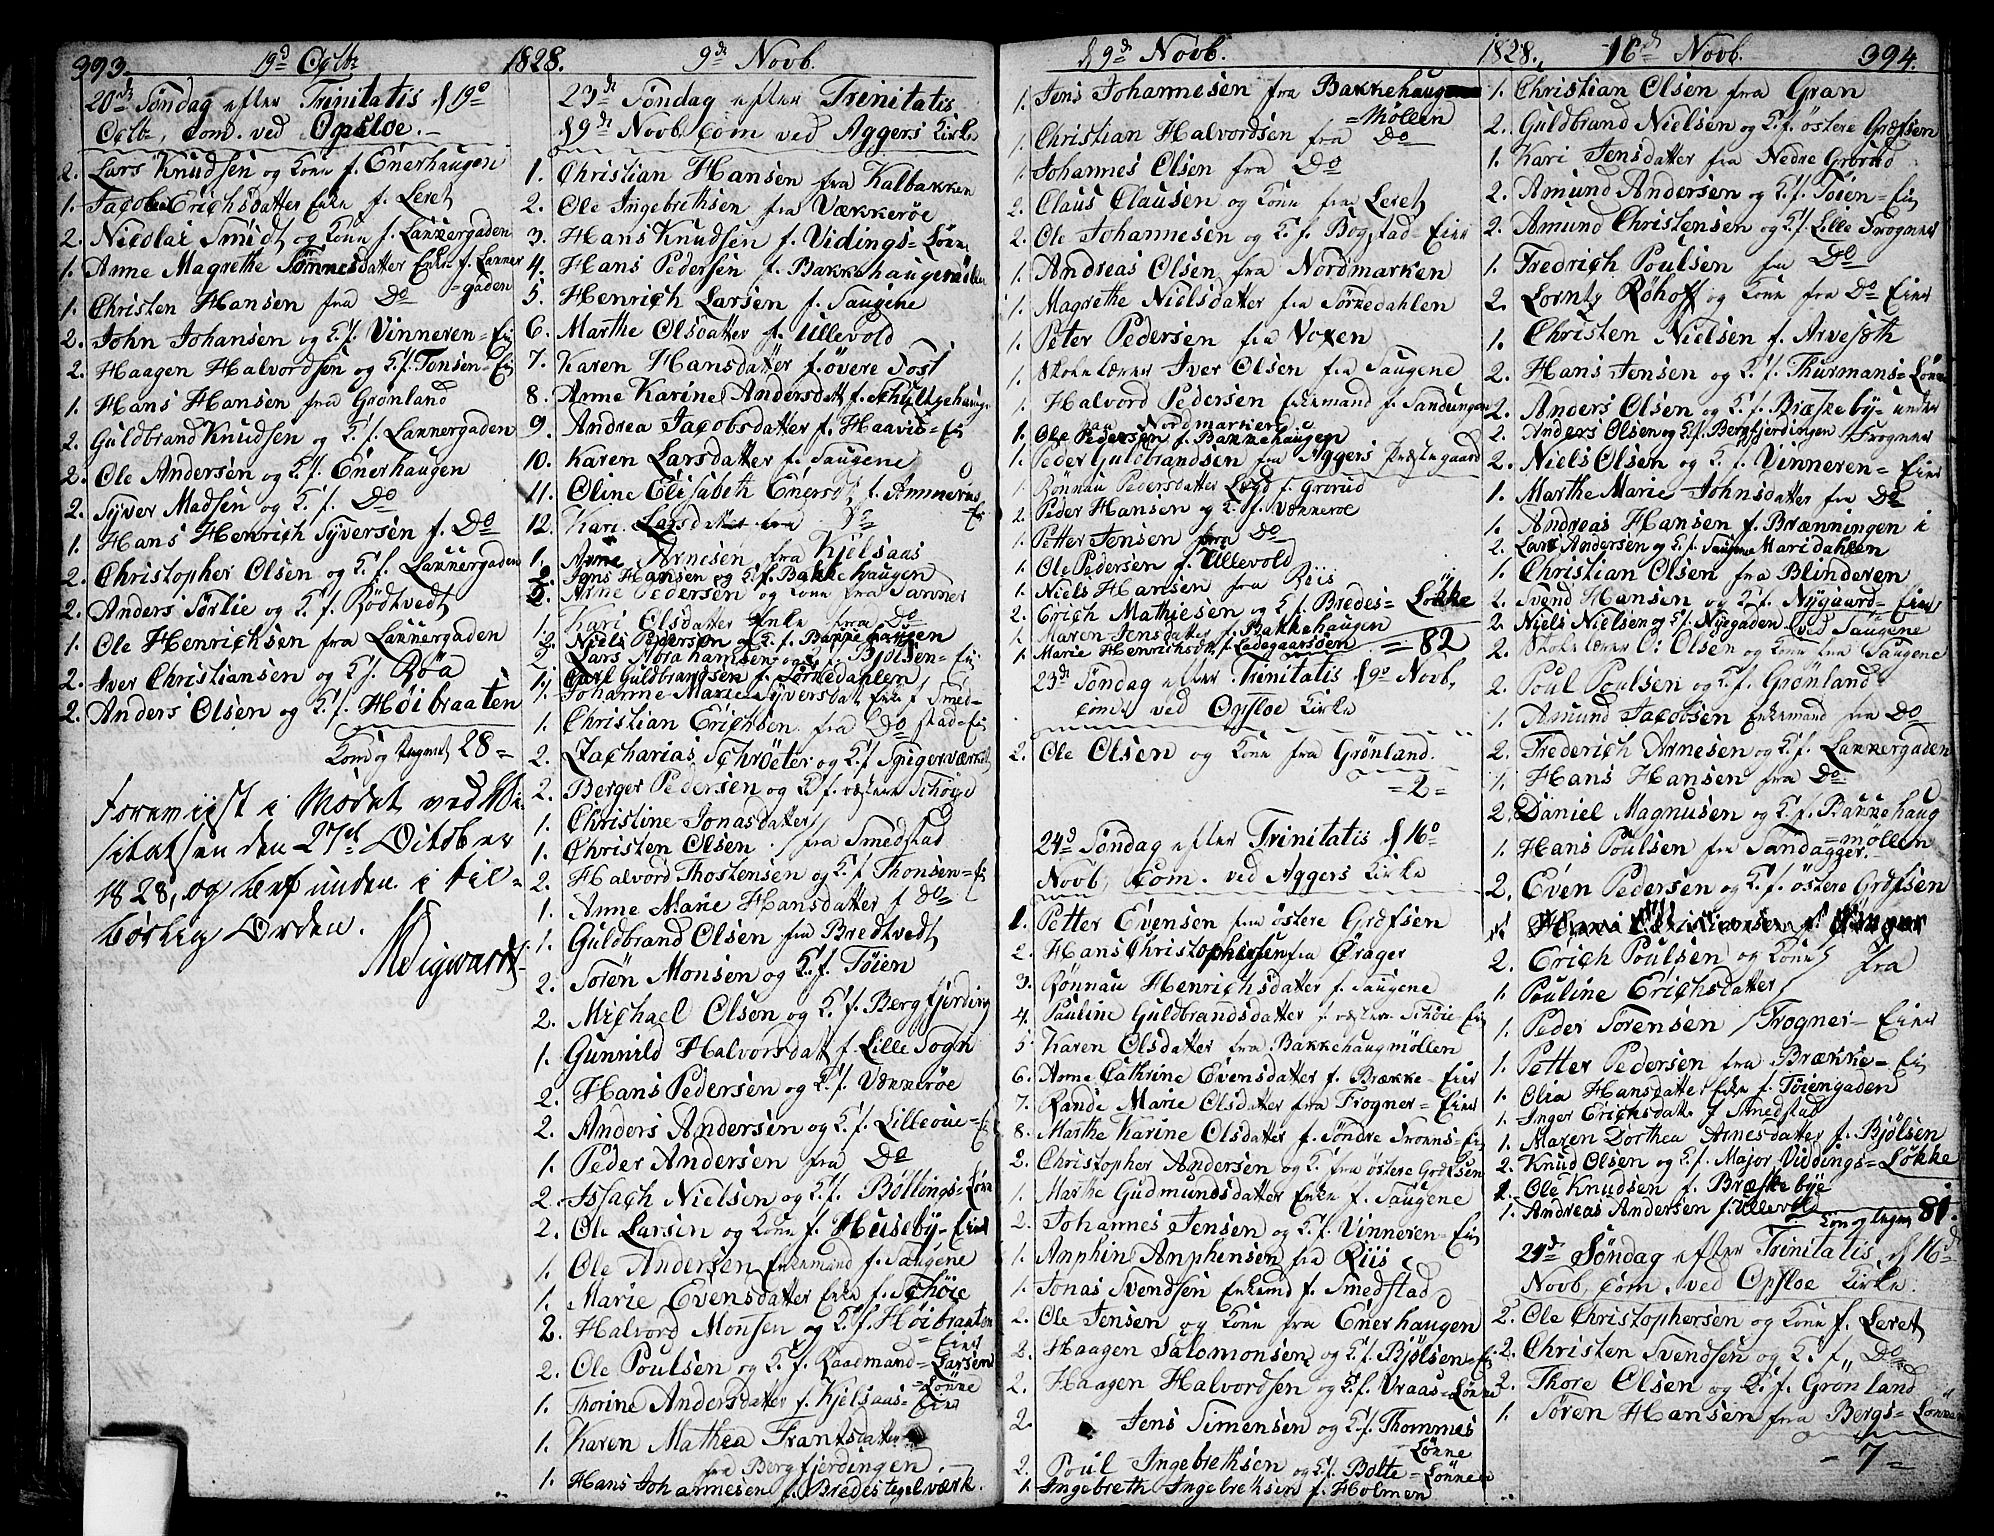 393. 19d Octbr 1828. 9de Novb.
20de Søndag efter Trinitatis d 19de
Octbr, Com. ved Opsloe.
2. Lars Knudsen og Kone f. Enerhaugen
1. Jacob Erichsdatter Enke f. Leret
2. Nicolai Smidt og Kone f. Lakkergaden
1. Anne Magrethe Tønnesdatter Enke f. Lakker
=gaden
1. Christen Hansen fra Do
2. John Johansen og K. f. Vinneren=Eie
2. Haagen Halvordsen og K. f. Tonsen=Eie
1. Hans Hansen fra Grønland
2. Guldbrand Knudsen og K. f. Lakkergaden
2. Ole Andersen og K. f. Enerhaugen
2. Syver Madsen og K. f. Do
1. Hans Henrich Syversen f. Do
2. Christopher Olsen og K. f. Lakkergaden
2. Anders Sørlie og K. f. Rödtvedt
1. Ole Henrichsen fra Lakkergaden
2. Iver Christiansen og K. f. Röa
2. Anders Olsen og K. f. Höibraaten
28=
Foreviist i Mødet ved Vi-
sitatsen den 27de October
1828, og befunden i til-
børlig Orden.
23de Søndag efter Trinitatis
d 9de Novb. Com ved Aggers Kirke
1. Christian Hansen fra Kalbakken
2. Ole Ingebrethsen fra Vækkerøe
3. Hans Knudsen f. Vidings=Løkke
4. Hans Pedersen f. Bakkehaugenmølen
5. Henrich Larsen f. Saugene
6. Marthe Olsdatter f. Ullevold
7. Karen Hansdatter f. øvere Fost
8. Anne Karine Andersdatt f. Schultzehaug
9. Andrea Jacobsdatter f. Haavie=Eie
10. Karen Larsdatter f. Saugene
11. Oline Elisabeth Enersd f. Ammerud=
Eie
12. Kari Larsdatter fra Do
1. Arne Arnesen fra Kjelsaas
2. Jens Hansen og K. f. Bakkehaugen
2. Arne Pedersen og Kone fra
1. Kari Olsdatter Enke fra Do
2. Niels Pedersen og K. f. Bakkehaugen
2. Lars Abrahamsen og K. f. Bjølsen=Eie
1. Carl Guldbrandsen f. Sørkedahlen
1. Johanne Marie Syversdat Enke f. Smed=
1. Christian Erichsen fra Do stad=Ei
2. Zacharias Schröeter og K. f. Spigerværket
2. Berger Pedersen og K. f. vestere Schöie
1. Christine Jonasdatter
1. Christen Olsen / fra Smedstad
2. Halvord Thostensen og K. f. Thonsen=Ei
1. Anne Marie Hansdatter f Do
1. Guldbrand Olsen fra Bredtvedt
2. Sorön Monsen og K. f. Töien
2. Michael Olsen og K. f. Bergfjerding
1. Gunnild Halvorsdat f. Lille Sogn
2. Hans Pedersen og K. f. Vækkerøe
2. Anders Andersen og K. f. Lilleøie=Ei
1. Peder Andersen fra Do
2. Issach Nielsen og K. f. Böllings=Løkke
2. Ole Larsen og Kone f. Huseby=Eie
1. Ole Andersen Enkemand f. Saugene
1. Marie Evensdatter Enke f. Schöie
2. Halvord Monsen og K. f. Höibraaten
=Eie
2. Ole Poulsen og K. f. Raadmand=Larsens
=Løkke
1. Thorine Andersdatter f. Kjelsaas=Eie
1. Karen Mathea Frantsdatter
fra Bergfjerdingen
1. Hans Johannesen f. Bredes tegelværk.
d 9de Novb. 1828. 16de Novb. 394.
1. Jens Johannesen fra Bakkehaugen
=Møllen
1. Christian Halvordsen fra Do
1. Johannes Olsen fra Do
2. Claus Clausen og Kone fra Leret
2. Ole Johannesen og K. f. Bogstad=Eie
1. Andreas Olsen fra Nordmarken
1. Magrethe Nielsdatter fra Sørkedahlen
1. Peter Pedersen fra Voxen
1. Skolelærer Iver Olsen fra Saugene
1. Halvord Pedersen Enkemand f. Sandungen
paa Nordmarken
1. Ole Pedersen f. Bakkehaugen
1. Peder Guldbrandsen fra Aggers Præstegaard
1. Rönnau Pedersdatter Lægd f. Grorud
2. Peder Hansen og K. f. Vækkerøe
1. Petter Jensen fra Do
1. Ole Pedersen f. Ullevold
1. Niels Hansen fra Riis
2. Erich Mathiesen og K. f. Bredes=Løkke
1. Maren Jensdatter f. Bakkehaugen
1. Marie Henrichsdt. f. Ladegaarsöen =82
23de Søndag efter Trinitatis d 9de Novb,
com. ved Opsloe Kirke
2. Ole Olsen og Kone fra Grønland.
=2=
24de Søndag efter Trinitatis d 16de
Novb, Com. ved Aggers Kirke
1. Petter Evensen fra østere Græfsen
2. Hans Christophersen fra Grager
3. Rönnau Henrichsdatter f. Saugene
4. Pauline Guldbrandsdatter f. vestere Schöie=Ei
5. Karen Olsdatter fra Bakkehaugmöllen
6. Anne Cathrine Evensdatter f. Brække=Eie
7. Rande Marie Olsdatter fra Frogner=Eie
8. Marthe Karine Olsdatter f. Søndre Ei
2. Christopher Andersen og K. fra østere Græfsen
1. Marthe Gudmundsdatter Enke f. Saugene
2. Johannes Jensen og K. f. Vinneren=Ei
1. Anphin Anphensen fra Riis
1. Jonas Svendsen Enkemd f. Smedstad
2. Ole Jensen og Kone fra Enerhaugen
2. Haagen Salomonsen og K. f. Bjølsen=Ei
2. Haagen Halvordsen og K. f. Vraas=Løkke
2. Jens Simensen og K. f. Thommes
=Løkke
2. Poul Ingebrethsen og K. f. Bolte=Løkken
1. Ingebreth Ingebrethsen f. Holmen
1. Christian Olsen fra Gran
2. Guldbrand Nielsen og K. f. østere Græfsen
1. Kari Jensdatter fra Nedre Grorud
2. Amund Andersen og K. f. Töien=Ei
2. Amund Christensen og K. f. Lille Frogner
1. Fredrich Poulsen fra Do
2. Lorntz Röhoff og Kone fra Do Eie
1. Christen Nielsen f. Arvesæth
2. Hans Jensen og K. f. Thurmans=Løkke
2. Anders Olsen og K. f. Bræskeby=under
2. Anders Olsen og K. f. Bergfjerdingen / Frogner
2. Niels Olsen og K. f. Vinneren=Eie
1. Marthe Marie Johnsdatter fra Do
1. Andreas Hansen f. Brænningen i
2. Lars Andersen og K. f. Saugene Maridahlen
1. Christian Olsen fra Blinderen
2. Svend Hansen og K. f. Nygaard=Eie
2. Niels Nielsen og K. f. Nyegaden / ved Saugene
2. Skolelærer O: Olsen og Kone fra Saugene
2. Poul Poulsen og K. f. Grønland
1. Amund Jacobsen Enkemand fra Do
2. Frederich Arnesen og K. f. Lakkergaden
1. Hans Hansen fra Do
2. Daniel Magnusen og K. f. Bakkehaug
=möllen
1. Hans Poulsen fra Sandagger.
2. Even Pedersen og K. f. östere Græfsen
2. Erich Poulsen og Kone / fra
1. Pouline Erichsdatter
1. Peder Sørensen / Frogner=Eie
1. Petter Pedersen fra Brække=Ei
1. Olia Hansdatter Enke f. Töiengaden
1. Inger Erichsdatte f Smedstad
1. Maren Dorthea Arnesdatter f. Bjølsen
2. Knud Olsen og K. f. Major Viddings=Løkke
1. Ole Knudsen f. Bræskebye
1. Andreas Andersen f. Ullevold
81.
24de Søndag efter Trinitatis d 16de
Novb, Com. ved Opsloe Kirke.
2. Ole Christophersen og Kone f. Leret
2. Christen Svendsen og K. f. Do
2. Thore Olsen og K. f. Grønland
1. Søren Hansen fra Bergs=Løkke
-7=